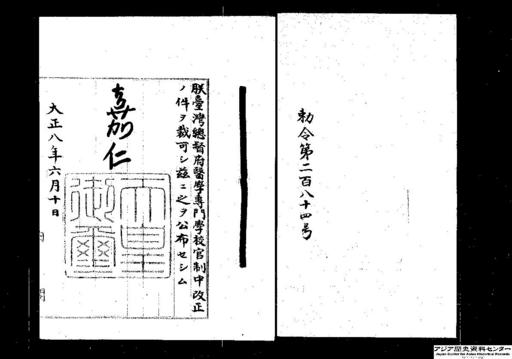 勅令第二百八十四号
朕臺灣總督府醫學專門學校官制中改正
ノ件ヲ裁可シ茲ニ之ヲ公布セシム
嘉仁
天皇
御璽
大正八年六月十日
アジア歴史資料センター
Japan Center for Asian Historical Records